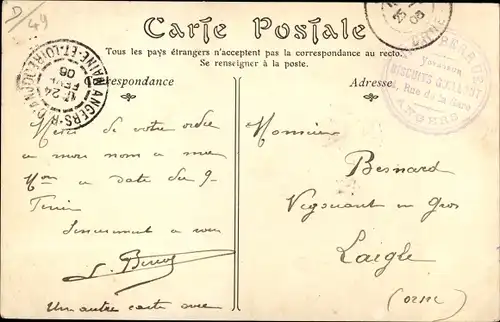 D/49
Carte Postale
Tous les pays étrangers n'acceptent pas la correspondance au recto.
Se renseigner à la poste.
Correspondance
Adresse
ANGERS-R
MAINE-ET-LOIRE
24
FEVR
06
ORNE
BISCUITS
Rue de la Gare
ANGERS
Merci de votre ordre
a mon nom a me
a date du 9
Sincèrement a vous
Un autre carte avec
Monsieur
Besnard
Négociant en Gros
Laigle
(orne)